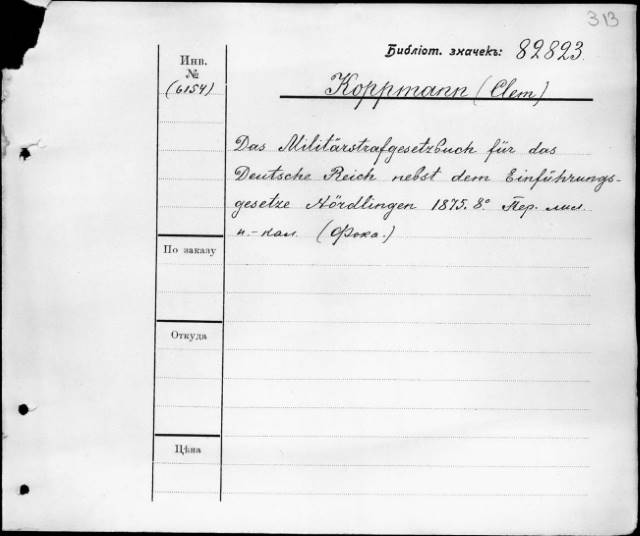 313
Библіот. значекъ: 82823
Инв.
№
(6154)
Koppmann (Clem)
Das Militärstrafgesetzbuch für das
Deutsche Reich nebst dem Einführungs-
gesetze Nördlingen 1875. 8.° Пер. лил.
п.-кал. (Фока.)
По заказу
Откуда
Цѣна